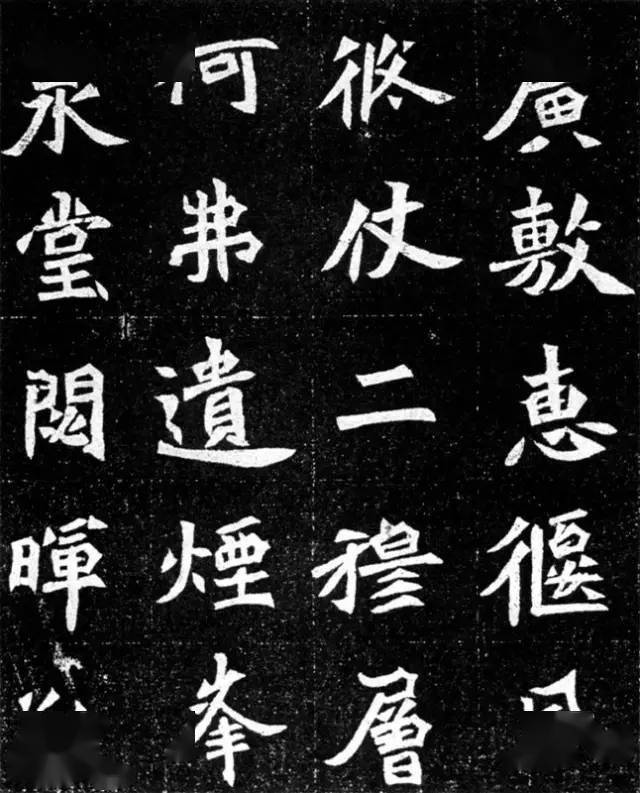 廣敷惠偃
修仗二穆層
何弗遺煙峯
永堂閟暉